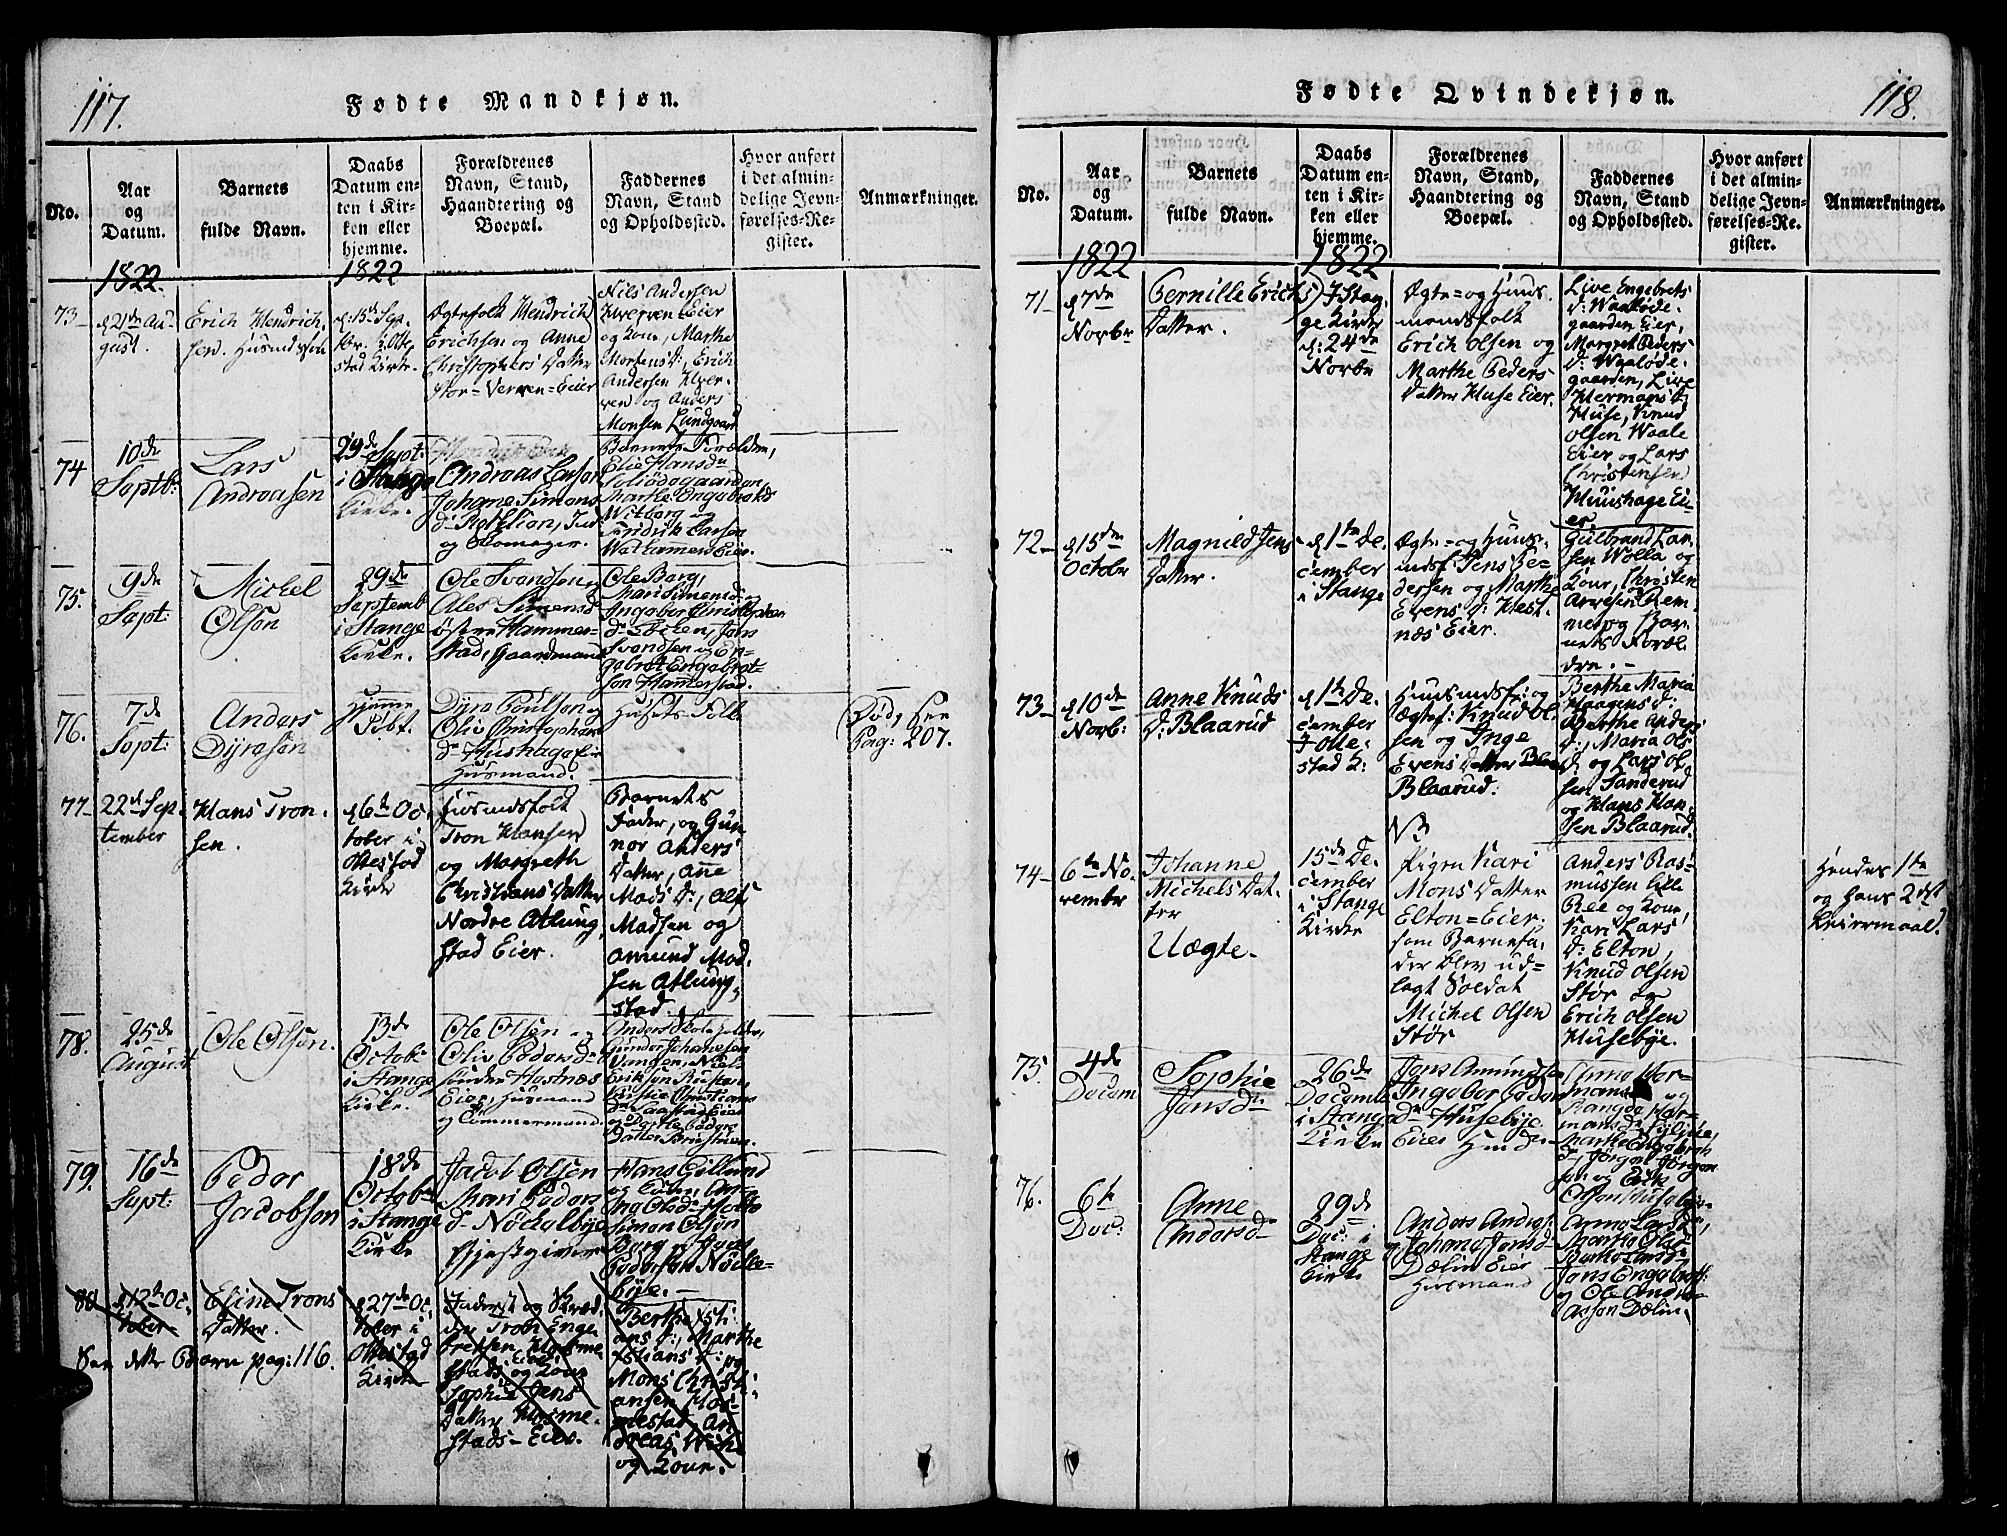 117.
Fødte Mandkjøn.
No.
Aar
og
Datum.
Barnets
fulde Navn.
Daabs
Datum en-
ten i Kir-
ken eller
hjemme.
Forældrenes
Navn, Stand,
Haandtering og
Boepæl.
Faddernes
Navn, Stand
og Opholdssted.
Hvor anført
i det almin-
delige Jevn-
førelses-Re-
gister.
Anmærkninger.
1822.
1822
73
d. 21de Au-
gust.
Erich Hendrich-
sen. Husmdssøn
d. 15de Sep-
br. i Otte-
stad Kirke.
Ægtefolk Hendrich
Erichsen og Anne
Christophers Datter
Stor-Verven-Eier
Niels Andersen
Hverven Eier
og Kone, Marthe
Mortens D:, Erich
Andersen Hver-
ven og Anders
Monsen Lundgaard
74
10de
Septb:
Lars
Andreasen
29de Sept:
i Stange
Kirke.
Andreas Larsen
Johane Simens
og Skomager.
Barnets Forældre,
Elie Hansdr
Marthe Engebrets
Witberg og
Fredrik Larsen
75.
9de
Sept:
Michel
Olsen
29de
Septemb
i Stange
Kirke.
Ole Svendsen
Ales Simensd
østre Hammer-
stad, Gaardmand
Ole Berg,
Mari Simensd og
Ingebor Christophers
Svendsen og En-
gebret Engebret-
sen Hamerstad.
76.
7de
Sept:
Anders
Dyresen
Hjemme
døbt.
Dyre Poulsen og
Oliv Christophers
dr Hushage Eie
Husmand.
Husets Folk
Død, see
Pag: 207.
77
22de Sep-
tember
Hans Tron-
sen.
d. 6te Oc-
tober i
Ottestad
Kirke
Husmdsfolk
Tron Hansen
og Margreth
Christians Datter
Nordre Atlung-
stad Eier.
Barnets
Fader, og Gun-
nor Anders
Datter, Anne
Mads D:, Ole
Madsen og
Amund Mad-
sen Atlung-
stad.
78.
25de
August
Ole Olsen.
13de
Octob:
i Stange
Kirke.
Ole Olsen og
Oliv Pedersdr
Søndre Hestnæs
Eier, Husmand
og Tømmermand.
Anders Skoleholder,
Gundor Johanesen
79.
16de
Sept:
Peder
Jacobsen
18de
Octob:
i Stange
Kirke
Jacob Olsen
Mari Peders
dr Nødalbye
Gjestgiver
Hans Gillund
og Kone, An-
Simon Olsen
Berg og
bye.
80
d. 12te Oc-
tober
Eline Trons
Datter.
d. 27de Oc-
tober i
Ottestad
Kirke
Inderst og Skræd-
der Tron Enge-
bretsen Hosme-
stads Eier
og Kone
Sophie Jens
Datter Hosme-
stads-Eier.
Berthe Xsti-
ans D:, Marthe
Xstians D: og
Mons Christi-
ansen Hos-
mestad, An-
dreas
og Kone.
See dette Barn pag: 116.
118.
Fødte Qvindekjøn.
No.
Aar
og
Datum.
Barnets
fulde Navn.
Daabs
Datum en-
ten i Kir-
ken eller
hjemme.
Forældrenes
Navn, Stand,
Haandtering og
Boepæl.
Faddernes
Navn, Stand
og Opholdssted.
Hvor anført
i det almin-
delige Jevn-
førelses-Re-
gister.
Anmærkninger.
1822
1822
71
d. 7de
Novbr
Pernille Erichs
Datter.
I Stan-
ge Kirke
d: 24de
Novbr
Ægte- og Huus-
mandsfolk
Erich Olsen og
Marthe Peders
Datter Huse Eier.
Live Engebrets
D: Waaløde-
gaarden Eier,
Margret Peders
D: Waaløde-
gaarden, Live
Hermans D:
Huse, Knud
Olsen Waale
Eier og Lars
Christensen
Huushage Ei-
er
72
d. 15de
Octobr
Magnild Jens
Datter.
d. 1te De-
cember
i Stange
Ægte- og Huus-
mdsf Jens Pe-
dersen og Marthe
Evens D: Hest-
næs Eier.
Gulbrand Lar-
sen Wolla og
Kone, Christen
Arvesen Rem-
met og Bar-
nets Foræl-
dre.
73
d. 10de
Novb:
Anne Knuds
D: Blaarud
d. 1te De-
cember
I Otte-
stad K:
Huusmdsf: og
Ægtef: Knud Ol-
sen og Inge
Evens Datter
Blaarud.
Berthe Maria
Haagens D:
Berthe Anders
D:, Maria Ols
D: og Lars Ol-
sen Sanderud
og Hans Han-
sen Blaarud.
74
6te No-
vember
Johanne
Michels Dat-
ter
Uægte.
15de De-
cember
i Stange
Kirke
NB
Pigen Kari
Mons Datter
Elton-Eier.
som Barnefa-
der blev ud-
lagt Soldat
Michel Olsen
Stør
Anders Ras-
mussen lille
Ree og Kone,
Kari Lars
D: Elton,
Knud Olsen
Stør og
Erich Olsen
Husebye.
Hendes 1te
og hans 2det
Leiermaal.
75.
4de
Decem
Sophie
Jensdr
26de
Decemb
i Stange
Kirke
Jens Amundsen
Ingebor Peders
dr Husebye
Eier Husmd
Anne Her-
mans og
Marthe Engebreth
D, Jørgen Jørgen-
sen og Erik
Olsen Husebye
76.
6te
Dec:
Anne
Andersd
29de
Dec: i
Stange
Kirke
Anders Anders:
og Johane Jensd
Dælin Eier
Husmand
Anne Larsdr,
Marthe Olsd
Berthe Larsdr
Jens Engebrets:
og Ole Andre-
assen Dælin.